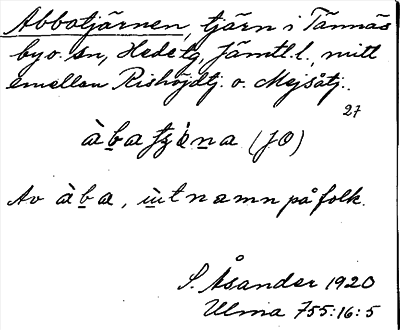 Abbotjärnen, tjärn i Tännäs
by o. sn, Hede tg, Jämtl. l., mitt
emellan Rishöjdtj. o. Mejsåtj.
27
àba (JO)
Av àba, ùtnamn på folk.
S. Åsander 1920
Ulma 755:16:5